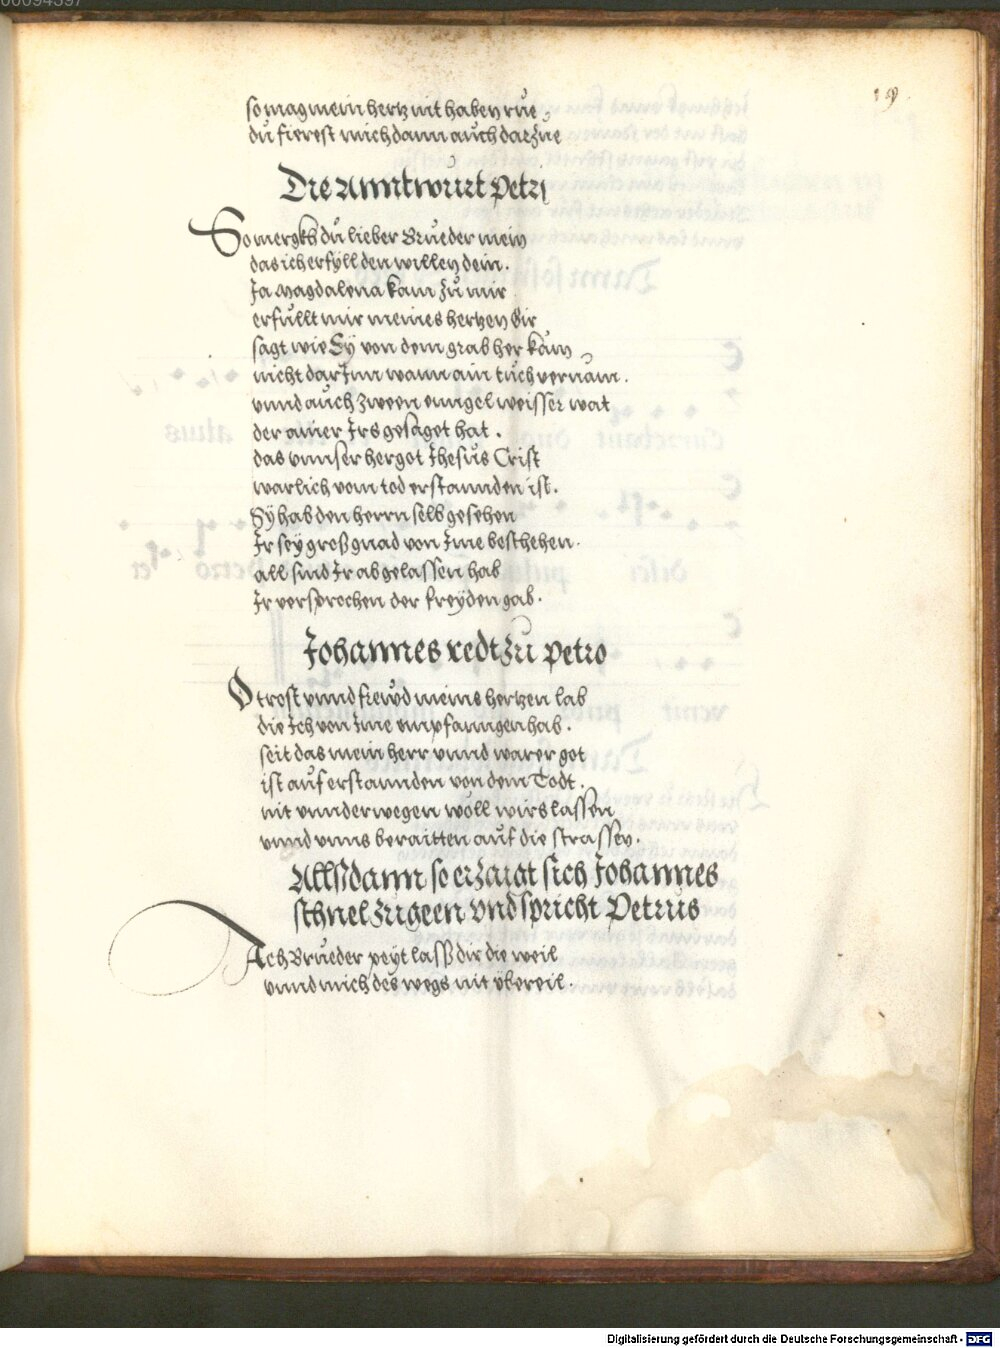 19
so mag mein hertz nit haben rue
du fierest mich dann auch darzue
Die Anntwurt Petri
So merckh du lieber Brueder mein
das ich erfyll den willen dein.
Ja Magdalena kam zu mir
erfullt mir meines hertzen gir
sagt wie Sy von dem grab her kam
nicht darInn wann ain tuch vernam.
vnnd auch zween enngel weisser wat
der ainer Irs gesaget hat.
das vnnser hergot Jhesus Crist
warlich vom tod erstannden ist.
Sy hab den herrn selb gesehen
Ir sey groß gnad von Ime beschehen.
all sind Ir abgelassen hab
Ir versprochen der freyden gab.
Johannes redt zu Petro
O trost vnnd freud meins hertzen lab
die Ich von Ime empfanngen hab.
seit das mein herr vnnd warer got
ist auferstannden von dem Todt.
nit vnnderwegen woll wirs lassen
vnnd vnns beraitten auf die strassen.
Allßdann so erzaigt sich Johannes
schnel zugeen vnd spricht Petrus
Ach Brueder peyt lass dir die weil
vnnd mich des wegs nit ybereil.
Digitalisierung gefördert durch die Deutsche Forschungsgemeinschaft - DFG